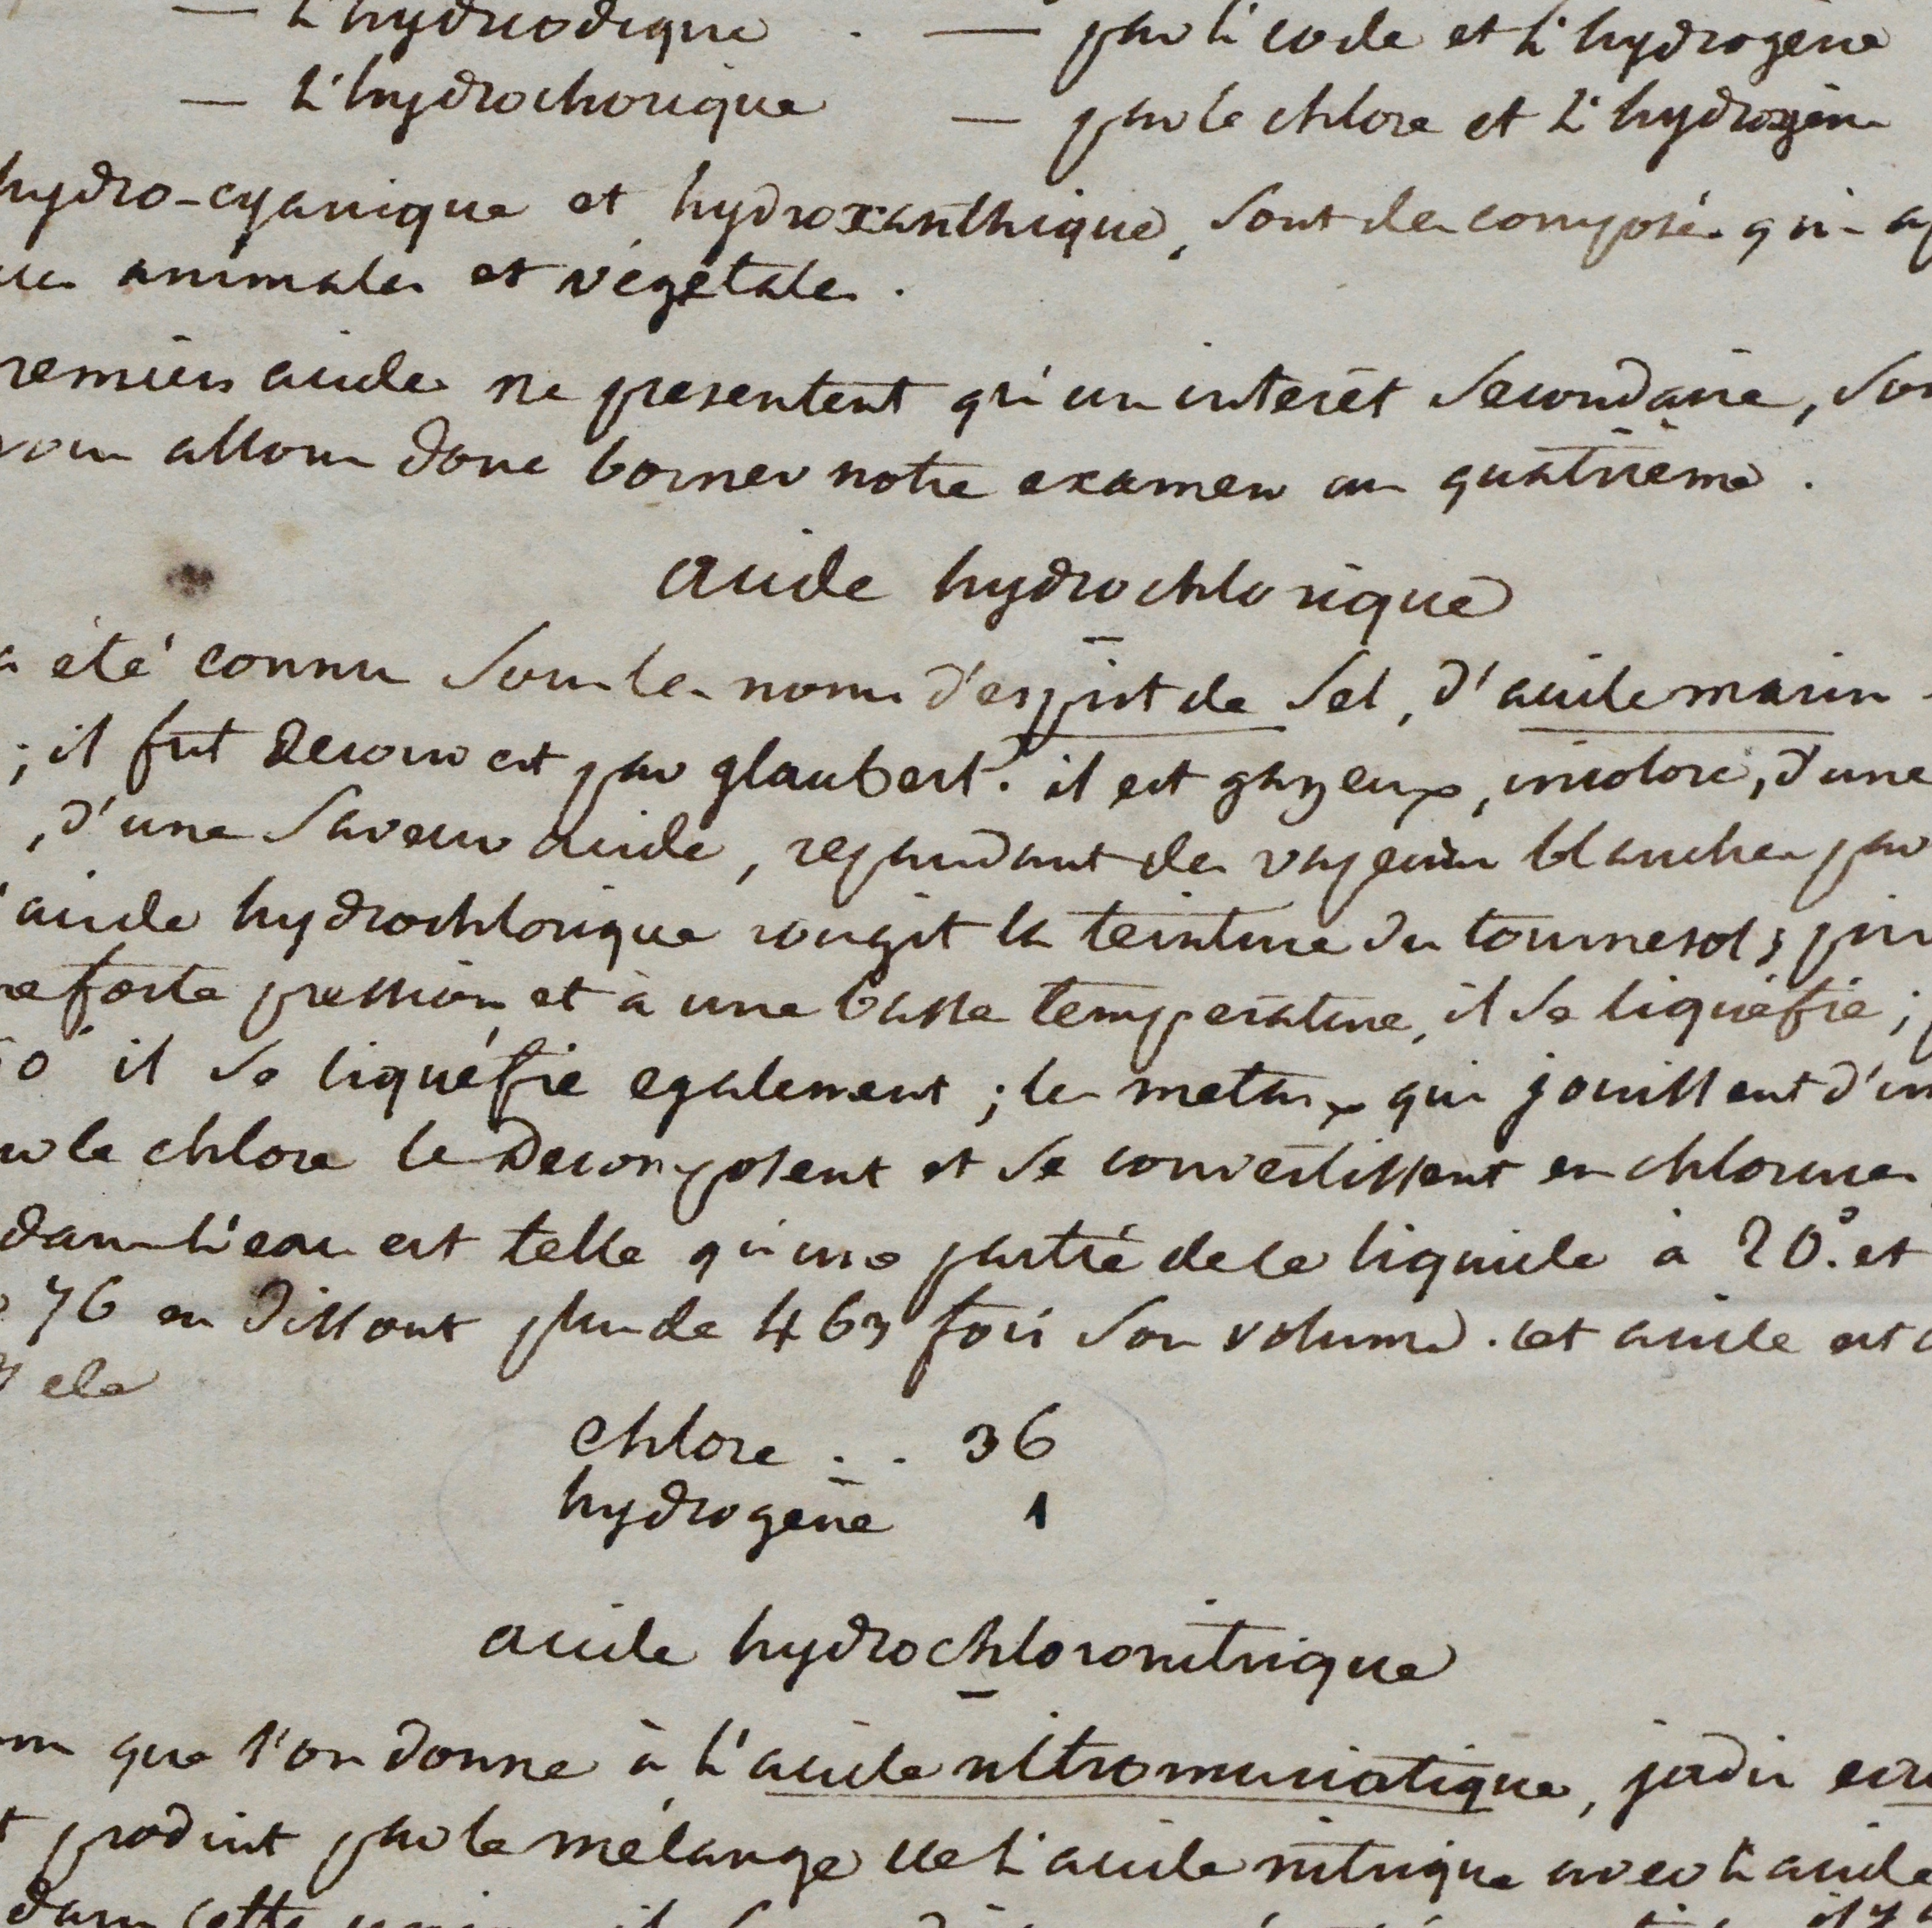 — L'hydriodique . — par l'iode et L'hydrogène
— L'hydrochorique — par le chlore et L'hydrogène
hydro-cyanique et hydroxanthique, sont des composés qui
animales et végétales.
remiers acides ne presentent qu'un interêt secondaire,
allons donc borner notre examen au quatrième.
acide hydrochlorique
a été connu sous les noms d'esprit de sel, d'acide marin
; il fut decouvert par glaubert. il est gazeux, incolore, d'une
, d'une saveur acide, repandant des vapeurs blanches par
acide hydrochlorique rougit la teinture du tournesol;
forte pression et à une basse temperature, il se liquéfie;
0° il se liquéfie egalement; les metaux qui jouissent d'un
le chlore le decomposent et se convertissent en chlorures
dans l'eau est telle qu'une partie de ce liquide à 20°. et
76 en dissout plus de 463 fois son volume. cet acide est
de
chlore . . 36
hydrogène 1
acide hydrochloronitrique
que l'on donne à L'acide nitromuriatique, jadis eau
produit par le mélange de L'acide nitrique avec L'acide
dans cette